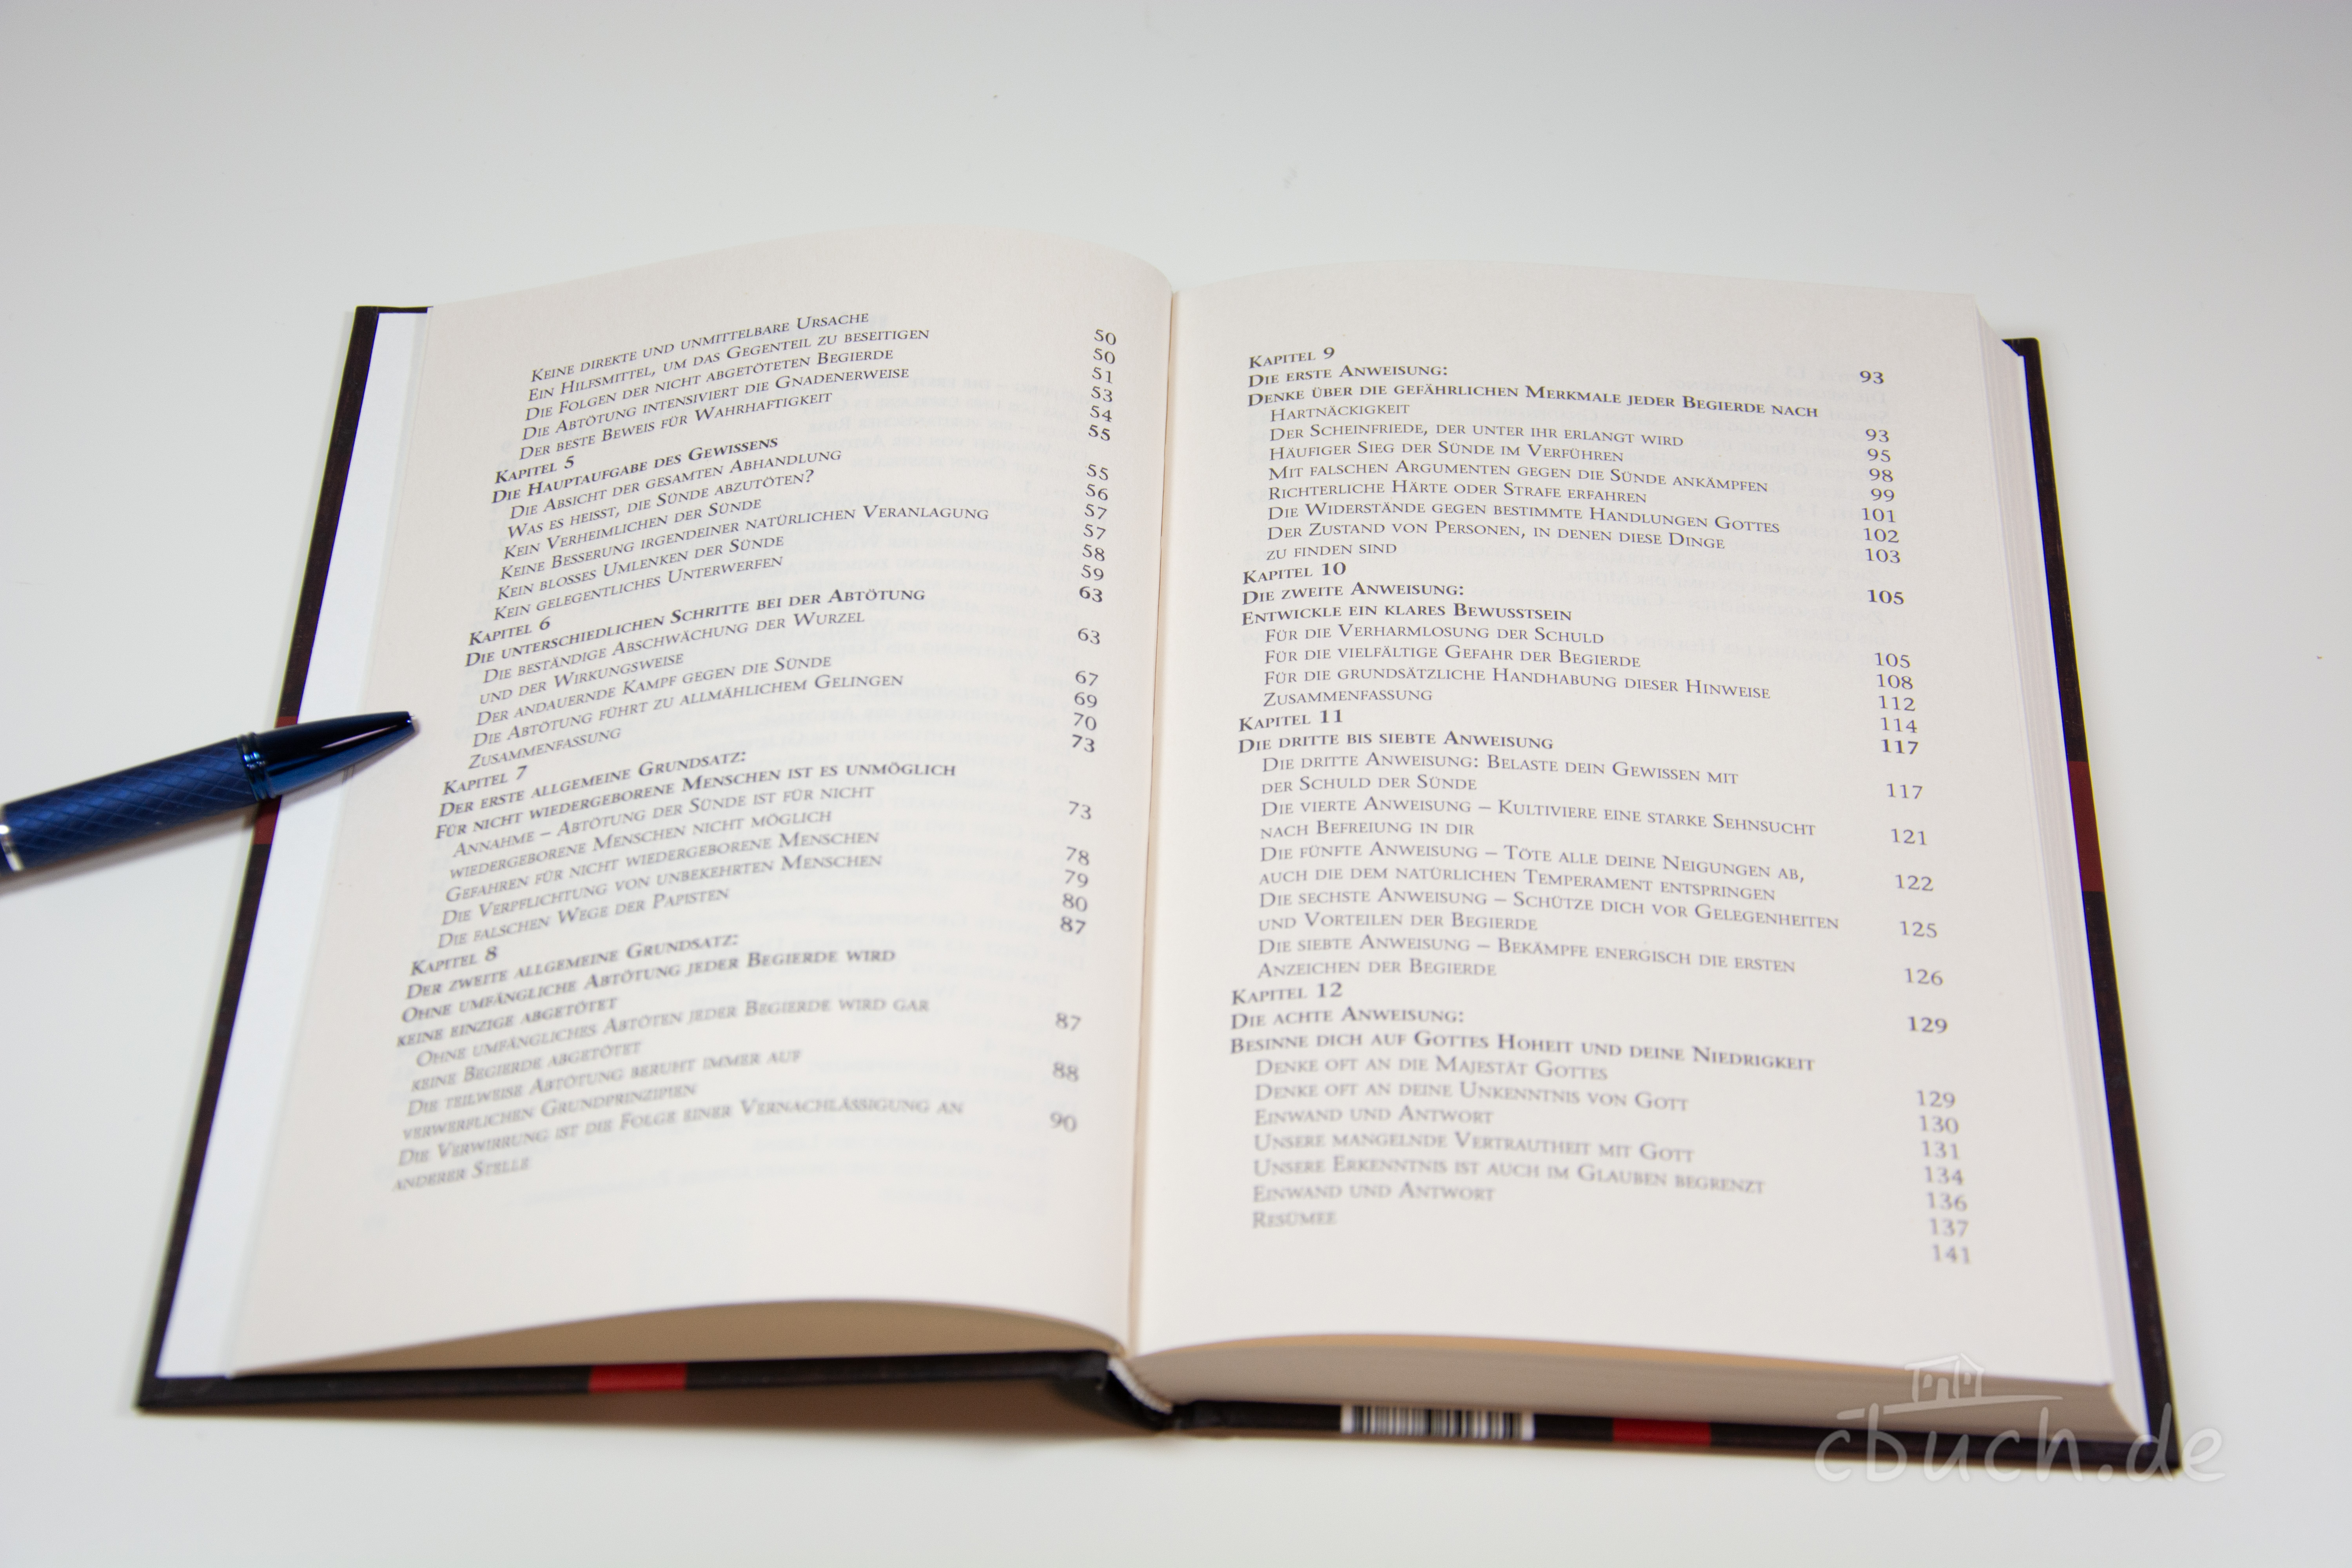 Keine direkte und unmittelbare Ursache 50
Ein Hilfsmittel, um das Gegenteil zu beseitigen 50
Die Folgen der nicht abgetöteten Begierde 51
Die Abtötung intensiviert die Gnadenerweise 53
Der beste Beweis für Wahrhaftigkeit 54
Kapitel 5 55
Die Hauptaufgabe des Gewissens
Die Absicht der gesamten Abhandlung 55
Was es heisst, die Sünde abzutöten? 56
Kein Verheimlichen der Sünde 57
Keine Besserung irgendeiner natürlichen Veranlagung 57
Kein blosses Umlenken der Sünde 58
Kein gelegentliches Unterwerfen 59
Kapitel 6 63
Die unterschiedlichen Schritte bei der Abtötung
Die beständige Abschwächung der Wurzel 63
und der Wirkungsweise
Der andauernde Kampf gegen die Sünde 67
Die Abtötung führt zu allmählichem Gelingen 69
Zusammenfassung 70
Kapitel 7 73
Der erste allgemeine Grundsatz:
Für nicht wiedergeborene Menschen ist es unmöglich
Annahme – Abtötung der Sünde ist für nicht 73
wiedergeborene Menschen nicht möglich
Gefahren für nicht wiedergeborene Menschen 78
Die Verpflichtung von unbekehrten Menschen 79
Die falschen Wege der Papisten 80
Kapitel 8 87
Der zweite allgemeine Grundsatz:
Ohne umfängliche Abtötung jeder Begierde wird
keine einzige abgetötet
Ohne umfängliches Abtöten jeder Begierde wird gar 87
keine Begierde abgetötet
Die teilweise Abtötung beruht immer auf 88
verwerflichen Grundprinzipien
Die Verwirrung ist die Folge einer Vernachlässigung an 90
anderer Stelle
Kapitel 9 93
Die erste Anweisung:
Denke über die gefährlichen Merkmale jeder Begierde nach
Hartnäckigkeit 93
Der Scheinfriede, der unter ihr erlangt wird 95
Häufiger Sieg der Sünde im Verführen 98
Mit falschen Argumenten gegen die Sünde ankämpfen 99
Richterliche Härte oder Strafe erfahren 101
Die Widerstände gegen bestimmte Handlungen Gottes 102
Der Zustand von Personen, in denen diese Dinge 103
zu finden sind
Kapitel 10 105
Die zweite Anweisung:
Entwickle ein klares Bewusstsein
Für die Verharmlosung der Schuld 105
Für die vielfältige Gefahr der Begierde 108
Für die grundsätzliche Handhabung dieser Hinweise 112
Zusammenfassung 114
Kapitel 11 117
Die dritte bis siebte Anweisung
Die dritte Anweisung: Belaste dein Gewissen mit 117
der Schuld der Sünde
Die vierte Anweisung – Kultiviere eine starke Sehnsucht 121
nach Befreiung in dir
Die fünfte Anweisung – Töte alle deine Neigungen ab, 122
auch die dem natürlichen Temperament entspringen
Die sechste Anweisung – Schütze dich vor Gelegenheiten 125
und Vorteilen der Begierde
Die siebte Anweisung – Bekämpfe energisch die ersten 126
Anzeichen der Begierde
Kapitel 12 129
Die achte Anweisung:
Besinne dich auf Gottes Hoheit und deine Niedrigkeit
Denke oft an die Majestät Gottes 129
Denke oft an deine Unkenntnis von Gott 130
Einwand und Antwort 131
Unsere mangelnde Vertrautheit mit Gott 134
Unsere Erkenntnis ist auch im Glauben begrenzt 136
Einwand und Antwort 137
Resümee 141
cbuch.de